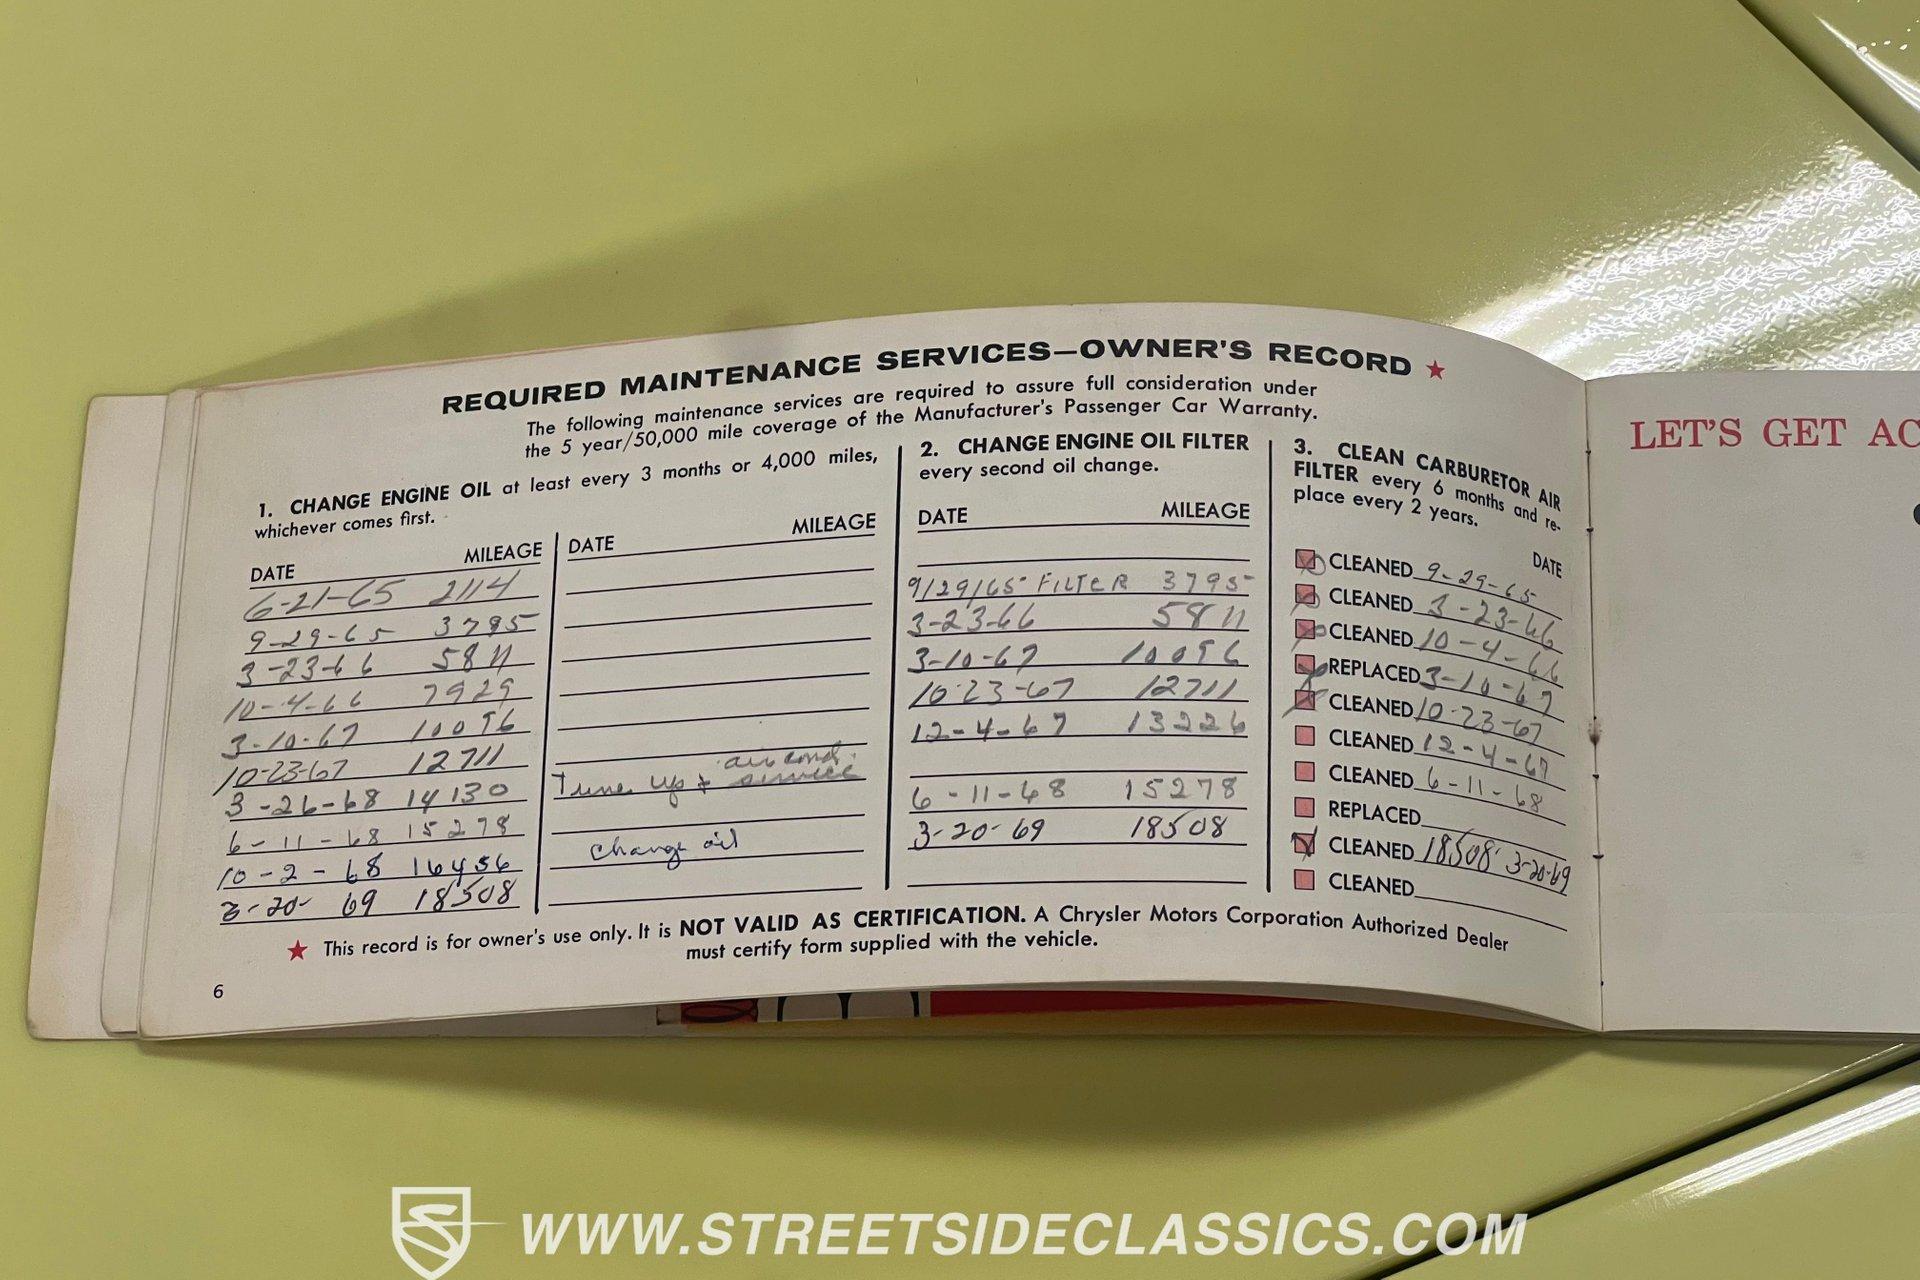 REQUIRED MAINTENANCE SERVICES—OWNER'S RECORD ★
The following maintenance services are required to assure full consideration under
the 5 year/50,000 mile coverage of the Manufacturer's Passenger Car Warranty.
1. CHANGE ENGINE OIL at least every 3 months or 4,000 miles,
whichever comes first.
DATE MILEAGE
6-21-65 2114
9-29-65 3795
3-23-66 5811
10-4-66 7929
3-10-67 10096
10-23-67 12711
3-26-68 14130
6-11-68 15278
10-2-68 16456
3-20-69 18508
DATE MILEAGE
air cond.
Tune up + service
change oil
2. CHANGE ENGINE OIL FILTER
every second oil change.
DATE MILEAGE
9/29/65 FILTER 3795
3-23-66 5811
3-10-67 10096
10-23-67 12711
12-4-67 13226
6-11-68 15278
3-20-69 18508
3. CLEAN CARBURETOR AIR
FILTER every 6 months and re-
place every 2 years.
DATE
CLEANED 9-29-65
CLEANED 3-23-66
CLEANED 10-4-66
REPLACED 3-10-67
CLEANED 10-23-67
CLEANED 12-4-67
CLEANED 6-11-68
REPLACED
CLEANED 18508 3-20-69
CLEANED
★ This record is for owner's use only. It is NOT VALID AS CERTIFICATION. A Chrysler Motors Corporation Authorized Dealer
must certify form supplied with the vehicle.
6
LET'S GET AC
WWW.STREETSIDECLASSICS.COM